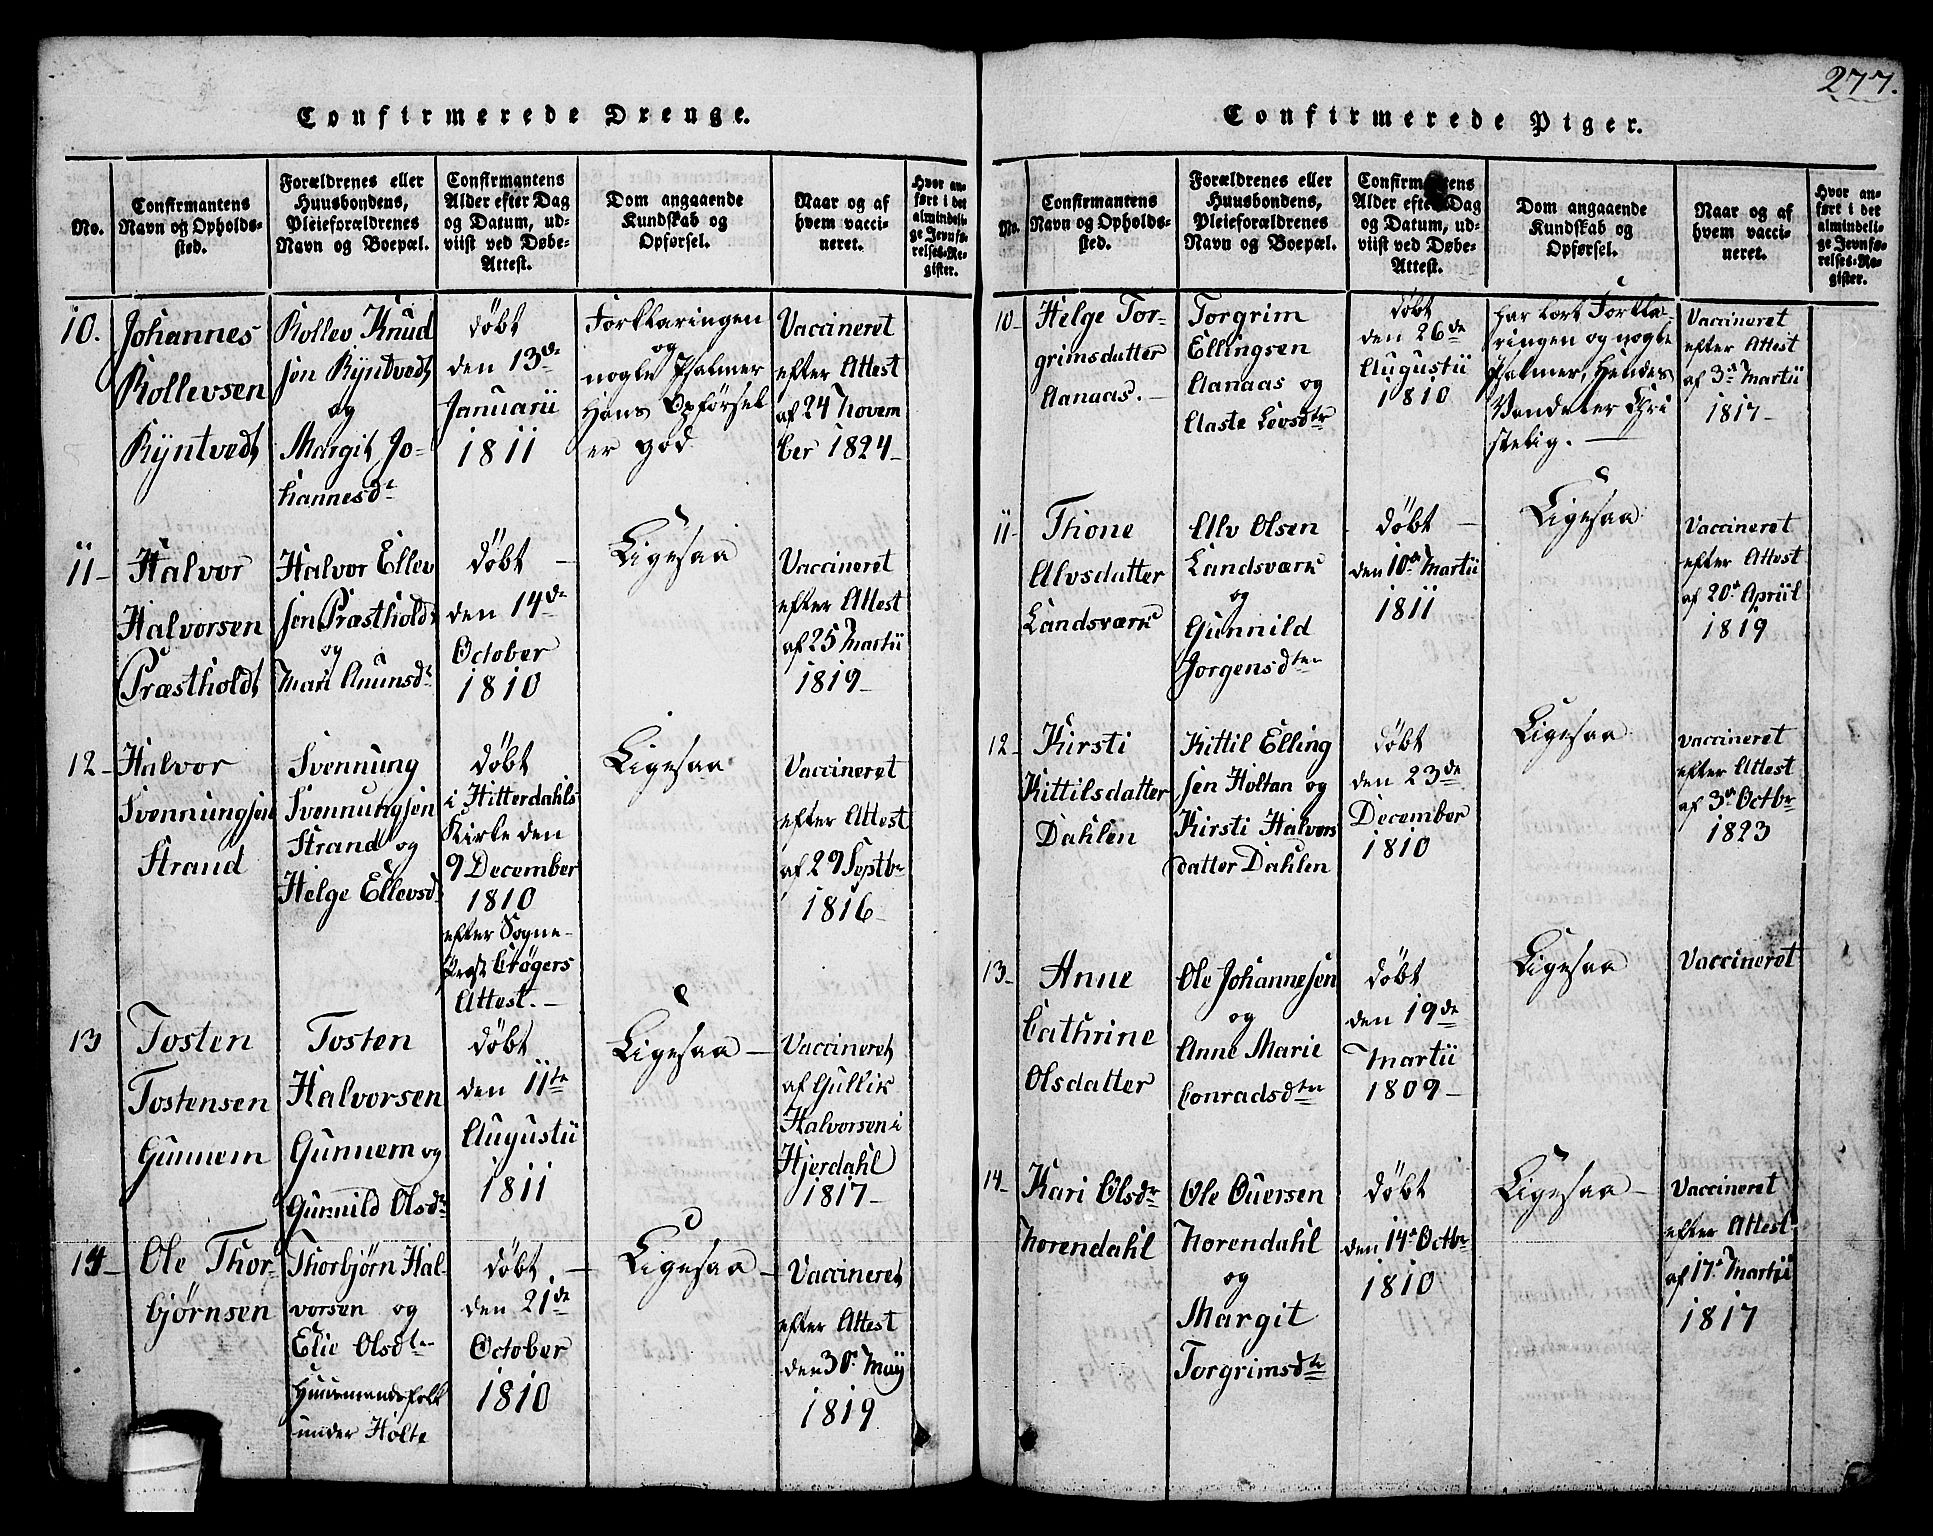 277.
Confirmerede Drenge.
No.
Confirmantens
Navn og Opholds-
sted.
Forældrenes eller
Huusbondens,
Pleieforældrenes
Navn og Boepæl.
Confirmantens
Alder efter Dag
og Datum, ud-
viist ved Døbe-
Attest.
Dom angaaende
Kundskab og
Opførsel.
Naar og af
hvem vacci-
neret.
Hvor an-
ført i det
almindeli-
ge Jevnfø-
relses-Re-
gister.
10.
Johannes
Rollevsen
Ryntvedt
Rollev Knud
sen Ryntvedt
og
Margit Jo-
hannesd.r
døbt
den 13de
Januarii
1811
Forklaringen
og
nogle Psalmer
Hans Opførsel
er god
Vaccineret
efter Attest
af 24 Novem
ber 1824-
11-
Halvor
Halvorsen
Præstholdt
Halvor Ellev
sen Præstholdt
og
Mari Anunsd.r
døbt -
den 14de
October
1810
Ligesaa
Vaccineret
efter Attest
af 25 Martii
1819-
12-
Halvor
Svennungsen
Strand
Svennung
Svennungsen
Strand og
Helge Ellevsd.
døbt
i Hitterdahls
Kirke den
9 December
1810
efter Sogne-
Præst Crøgers
Attest. -
Ligesaa
Vaccineret
efter Attest
af 29 Septbr
1816-
13
Tosten
Tostensen
Gunnem
Tosten
Halvorsen
Gunnem og
Gunnild Olsdr
døbt
den 11te
Augustii
1811
Ligesaa -
Vaccineret
af Gullik
Halvorsen i
Hjerdahl
1817-
14-
Ole Thor-
bjørnsen
Thorbjørn Hal-
vorsen og
Elie Olsdter
Huusmandsfolk
under Holte
døbt. -
den 21de
October
1810
Ligesaa -
Vaccineret
efter Attest
den 30. Maij
1819
Confirmerede Piger.
No.
Confirmantens
Navn og Opholds-
sted.
Forældrenes eller
Huusbondens,
Pleieforældrenes
Navn og Boepæl.
Confirmantens
Alder efter Dag
og Datum, ud-
viist ved Døbe-
Attest.
Dom angaaende
Kundskab og
Opførsel.
Naar og af
hvem vacci-
neret.
Hvor an-
ført i det
almindeli-
ge Jevnfø-
relses-Re-
gister.
10-
Helge Tor-
grimsdatter
Aanaas. -
Torgrim
Ellingsen
Aanaas og
Aaste Levsdtr
døbt
den 26de
Augustii
1810
Har lært Forkla-
ringen og nogle
Psalmer, Hendes
Vandel er Chri
stelig. -
Vaccineret
efter Attest
af 3. Martii
1817-
11-
Thone
Alvsdatter
Landsværk
Alv Olsen
Landsværk
og
Gunnild
Jorgensdter
døbt -
den 10. Martii
1811
Ligesaa
Vaccineret
efter Attest
af 20. Apriil
1819
12-
Kirsti
Kittilsdatter
Dahlen
Kittil Elling
sen Holtan og
Kirsti Halvors
datter Dahlen
døbt
den 23de
December
1810
Ligesaa
vaccineret
efter Attest
af 3. Octbr
1823
13-
Anne
Cathrine
Olsdatter
Ole Johannesen
og
Anne Marie
Conradsdter
døbt
den 19de
Martii
1809-
Ligesaa
Vaccineret
14-
Kari Olsdr
Norendahl
Ole Ouersen
Norendahl
og
Margit
Torgrimsdtr
døbt
den 14. Octbr
1810
Ligesaa -
Vaccineret
efter Attest
af 17. Martii
1817